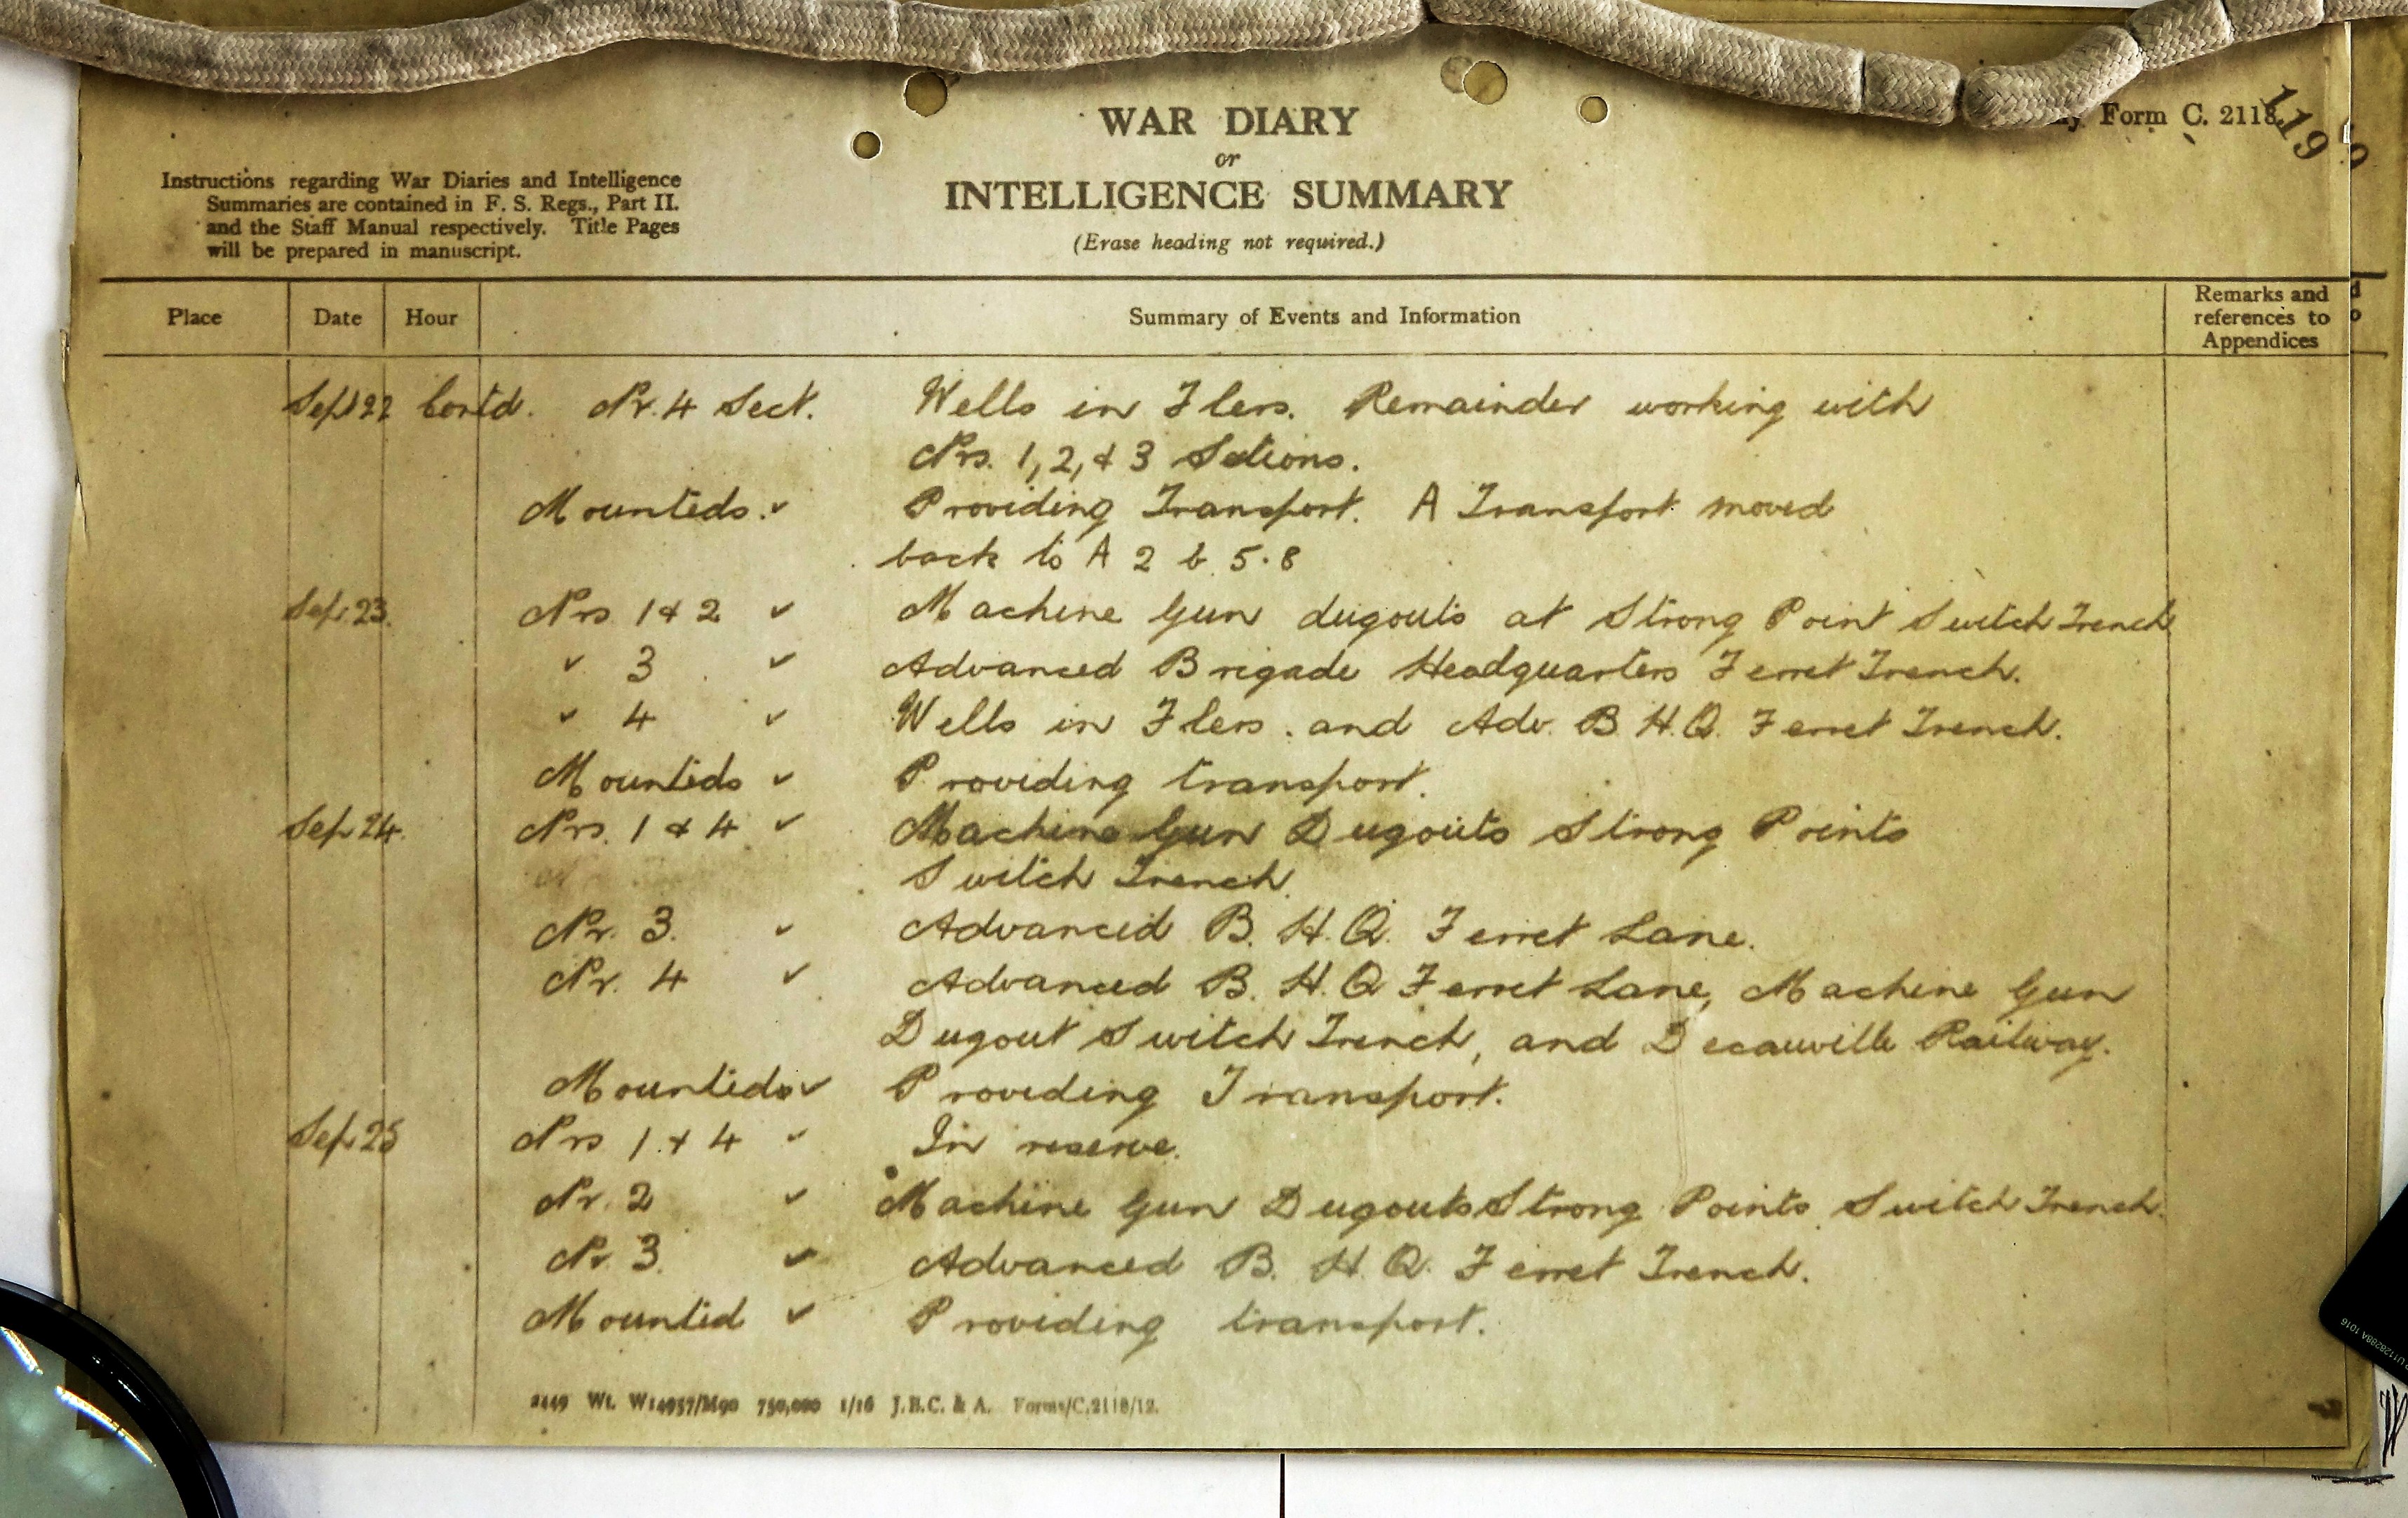 WAR DIARY
or
INTELLIGENCE SUMMARY
(Erase heading not required.)
Form C. 2118.
119
Instructions regarding War Diaries and Intelligence
Summaries are contained in F. S. Regs., Part II.
and the Staff Manual respectively. Title Pages
will be prepared in manuscript.
Place Date Hour Summary of Events and Information Remarks and references to Appendices
Sept 22 Contd. Nr. 4 Sect. Wells in Flers. Remainder working with
Nrs. 1, 2, & 3 Sctions.
Mounteds. " Providing Transport. A Transport moved
back to A 2 b 5.8
Sep. 23. Nrs 1 & 2 " Machine Gun dugouts at Strong Point Switch Trench
" 3 " Advanced Brigade Headquarters Ferret Trench.
" 4 " Wells in Flers. and Adv. B. H. Q. Ferret Trench.
Mounteds " Providing transport.
Sep. 24. Nrs. 1 & 4 " Machine Gun Dugouts Strong Points
Switch Trench.
Nr. 3. " Advanced B. H. Q. Ferret Lane.
Nr. 4 " Advanced B. H. Q Ferret Lane, Machine Gun
Dugout Switch Trench, and Decauville Railway.
Mounteds " Providing Transport.
Sep. 25 Nrs 1 & 4 " In reserve.
Nr. 2 " Machine Gun Dugouts Strong Points Switch Trench.
Nr. 3. " Advanced B. H. Q. Ferret Trench.
Mounted " Providing transport.
2449 Wt. W14957/M90 750,000 1/16 J.B.C. & A. Forms/C.2118/12.